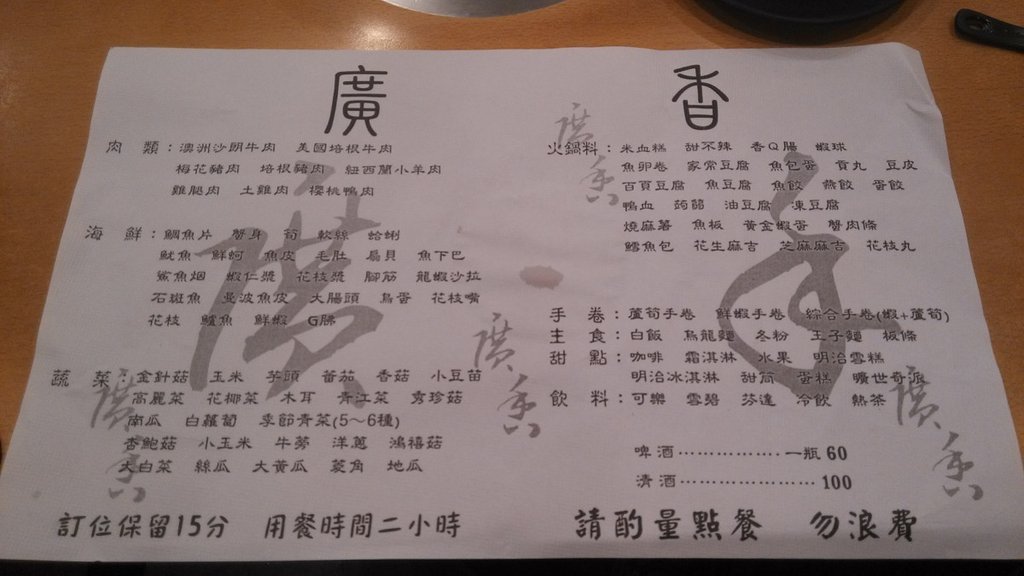 廣 香
肉 類：澳洲沙朗牛肉 美國培根牛肉
梅花豬肉 培根豬肉 紐西蘭小羊肉
雞腿肉 土雞肉 櫻桃鴨肉
海 鮮：鯛魚片 蟹身 筍 軟絲 蛤蜊
魷魚 鮮蚵 魚皮 毛肚 扇貝 魚下巴
鯊魚烟 蝦仁漿 花枝漿 腳筋 龍蝦沙拉
石斑魚 曼波魚皮 大腸頭 鳥蛋 花枝嘴
花枝 鱸魚 鮮蝦 G腸
蔬 菜：金針菇 玉米 芋頭 蕃茄 香菇 小豆苗
高麗菜 花椰菜 木耳 青江菜 秀珍菇
南瓜 白蘿蔔 季節青菜(5～6種)
杏鮑菇 小玉米 牛蒡 洋蔥 鴻禧菇
大白菜 絲瓜 大黃瓜 菱角 地瓜
訂位保留15分 用餐時間二小時
火鍋料：米血糕 甜不辣 香Q腸 蝦球
魚卵卷 家常豆腐 魚包蛋 貢丸 豆皮
百頁豆腐 魚豆腐 魚餃 燕餃 蛋餃
鴨血 蒟蒻 油豆腐 凍豆腐
燒麻薯 魚板 黃金蝦蛋 蟹肉條
鱈魚包 花生麻吉 芝麻麻吉 花枝丸
手 卷：蘆筍手卷 鮮蝦手卷 綜合手卷(蝦+蘆筍)
主 食：白飯 烏龍麵 冬粉 王子麵 板條
甜 點：咖啡 霜淇淋 水果 明治雪糕
明治冰淇淋 甜筒 蛋糕 曠世奇派
飲 料：可樂 雪碧 芬達 冷飲 熱茶
啤酒……………一瓶 60
清酒…………………100
請酌量點餐 勿浪費
廣香
廣香
廣香
廣香
廣香